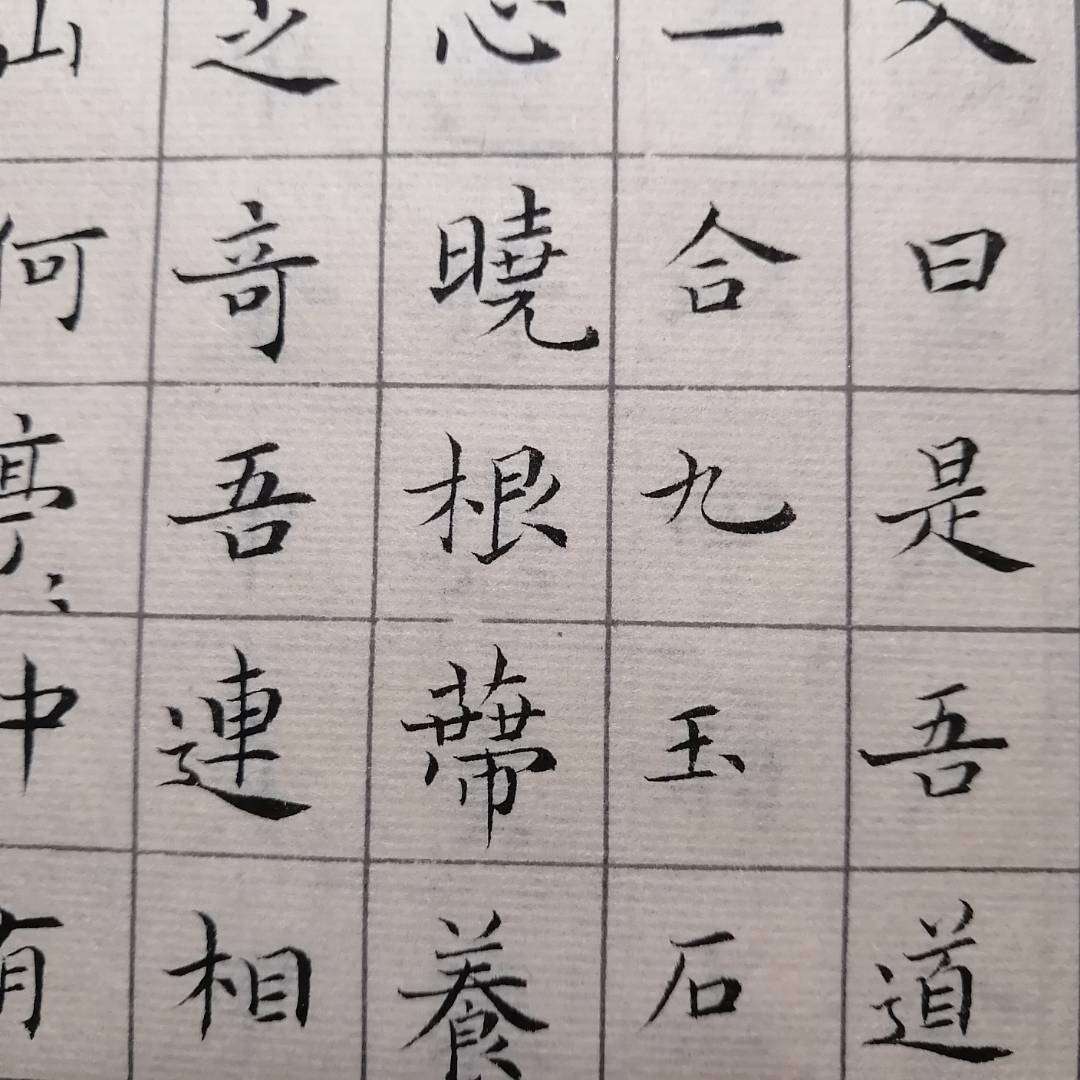 曰是吾道
一合九玉石
心曉根蔕養
之竒吾連相
山何亭〻中有